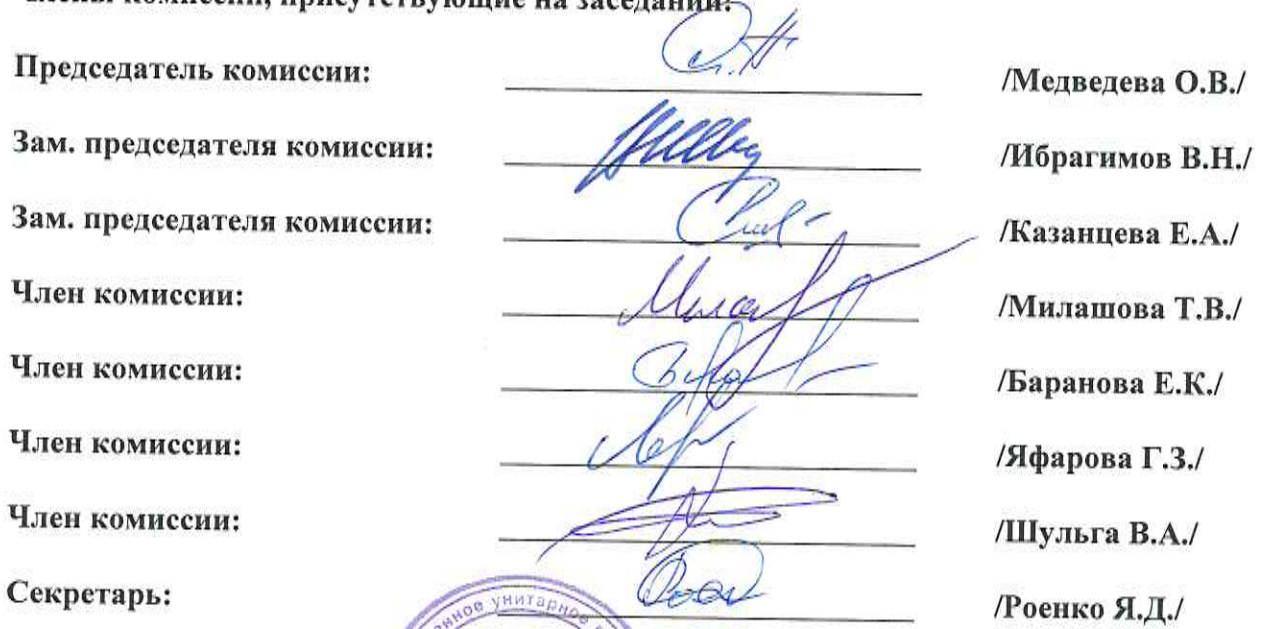 члены комиссии, присутствующие на заседании:
Председатель комиссии: /Медведева О.В./
Зам. председателя комиссии: /Ибрагимов В.Н./
Зам. председателя комиссии: /Казанцева Е.А./
Член комиссии: /Милашова Т.В./
Член комиссии: /Баранова Е.К./
Член комиссии: /Яфарова Г.З./
Член комиссии: /Шульга В.А./
Секретарь: /Роенко Я.Д./
унитарное